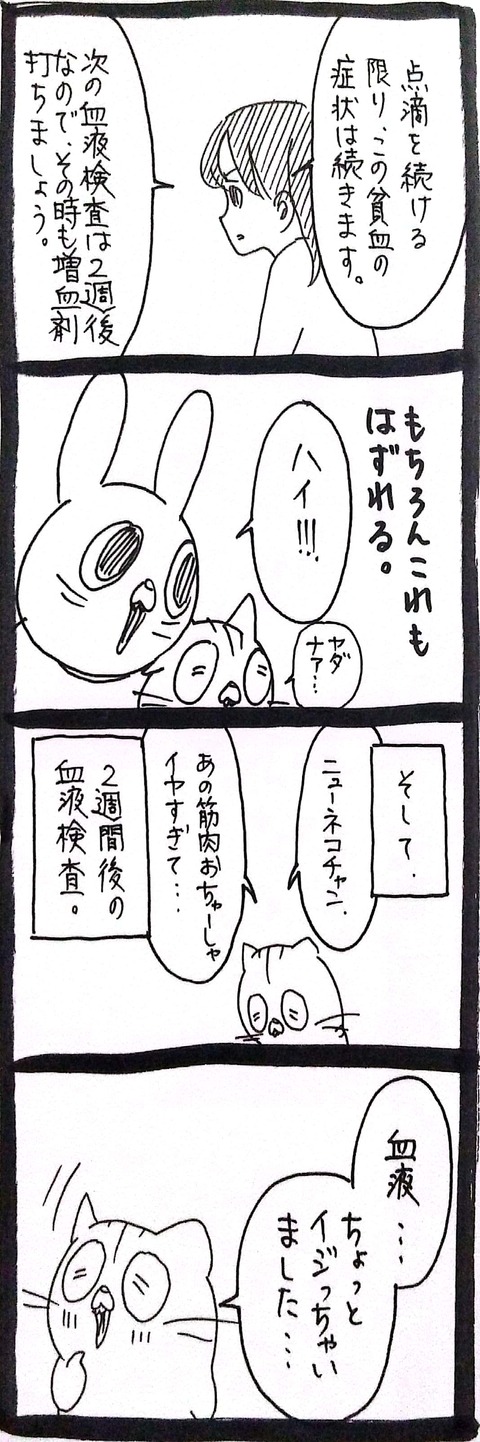 点滴を続ける
限り、この貧血の
症状は続きます。
次の血液検査は2週後
なので、その時も増血剤
打ちましょう。
もちろんこれも
はずれる。
ハイ!!!
ヤダ
ナァ…
そして、
ニューネコチャン、
あの筋肉おちゅーしゃ
イヤすぎて…
2週間後の
血液検査。
血液…
ちょっと
イジっちゃい
ました…